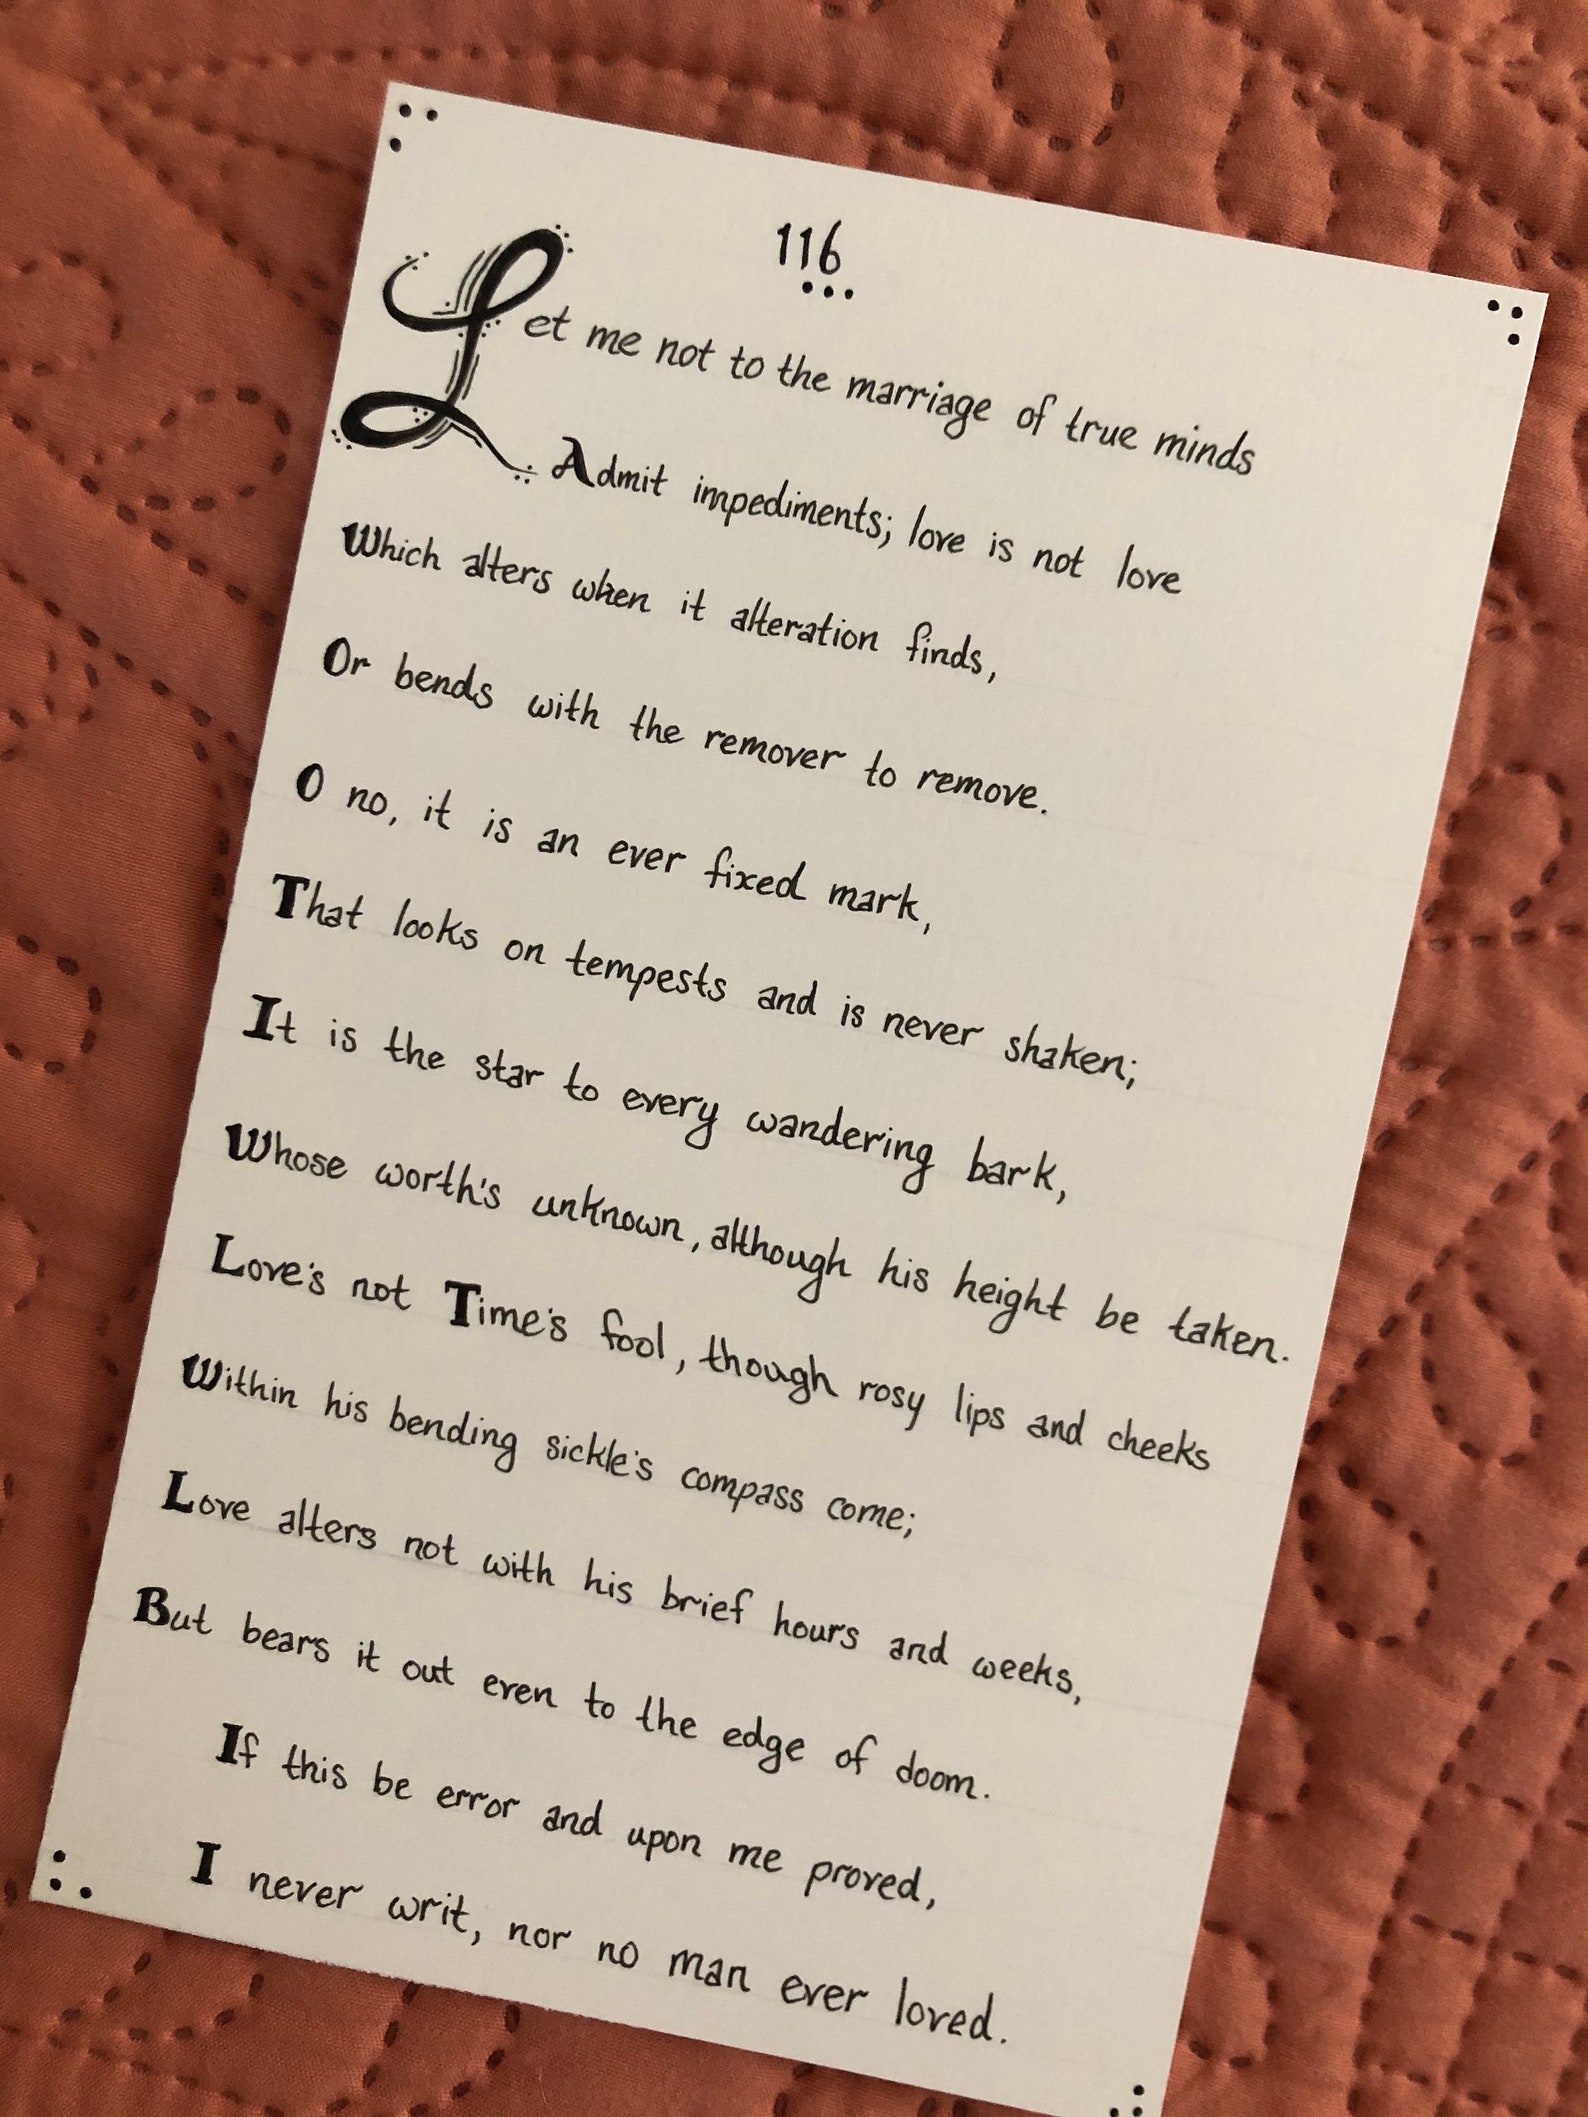 116
Let me not to the marriage of true minds
Admit impediments; love is not love
Which alters when it alteration finds,
Or bends with the remover to remove.
O no, it is an ever fixed mark,
That looks on tempests and is never shaken;
It is the star to every wandering bark,
Whose worth's unknown, although his height be taken.
Love's not Time's fool, though rosy lips and cheeks
Within his bending sickle's compass come;
Love alters not with his brief hours and weeks,
But bears it out even to the edge of doom.
If this be error and upon me proved,
I never writ, nor no man ever loved.